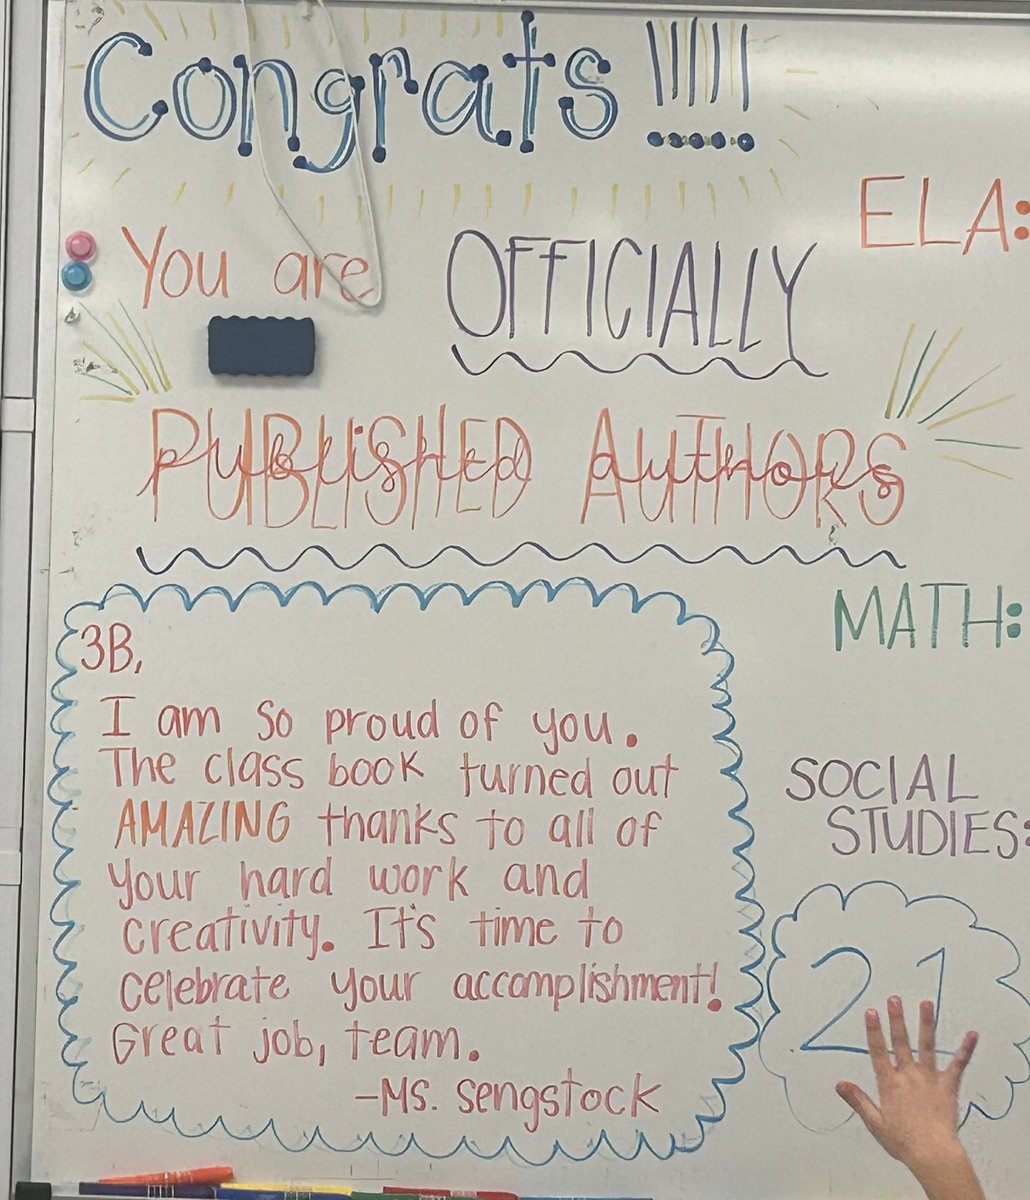 Congrats !!!!!
You are OFFICIALLY
PUBLISHED AUTHORS
3B,
I am so proud of you.
The class book turned out
AMAZING thanks to all of
your hard work and
creativity. It's time to
celebrate your accomplishment!
Great job, team.
-Ms. Sengstock
ELA:
MATH:
SOCIAL
STUDIES:
21